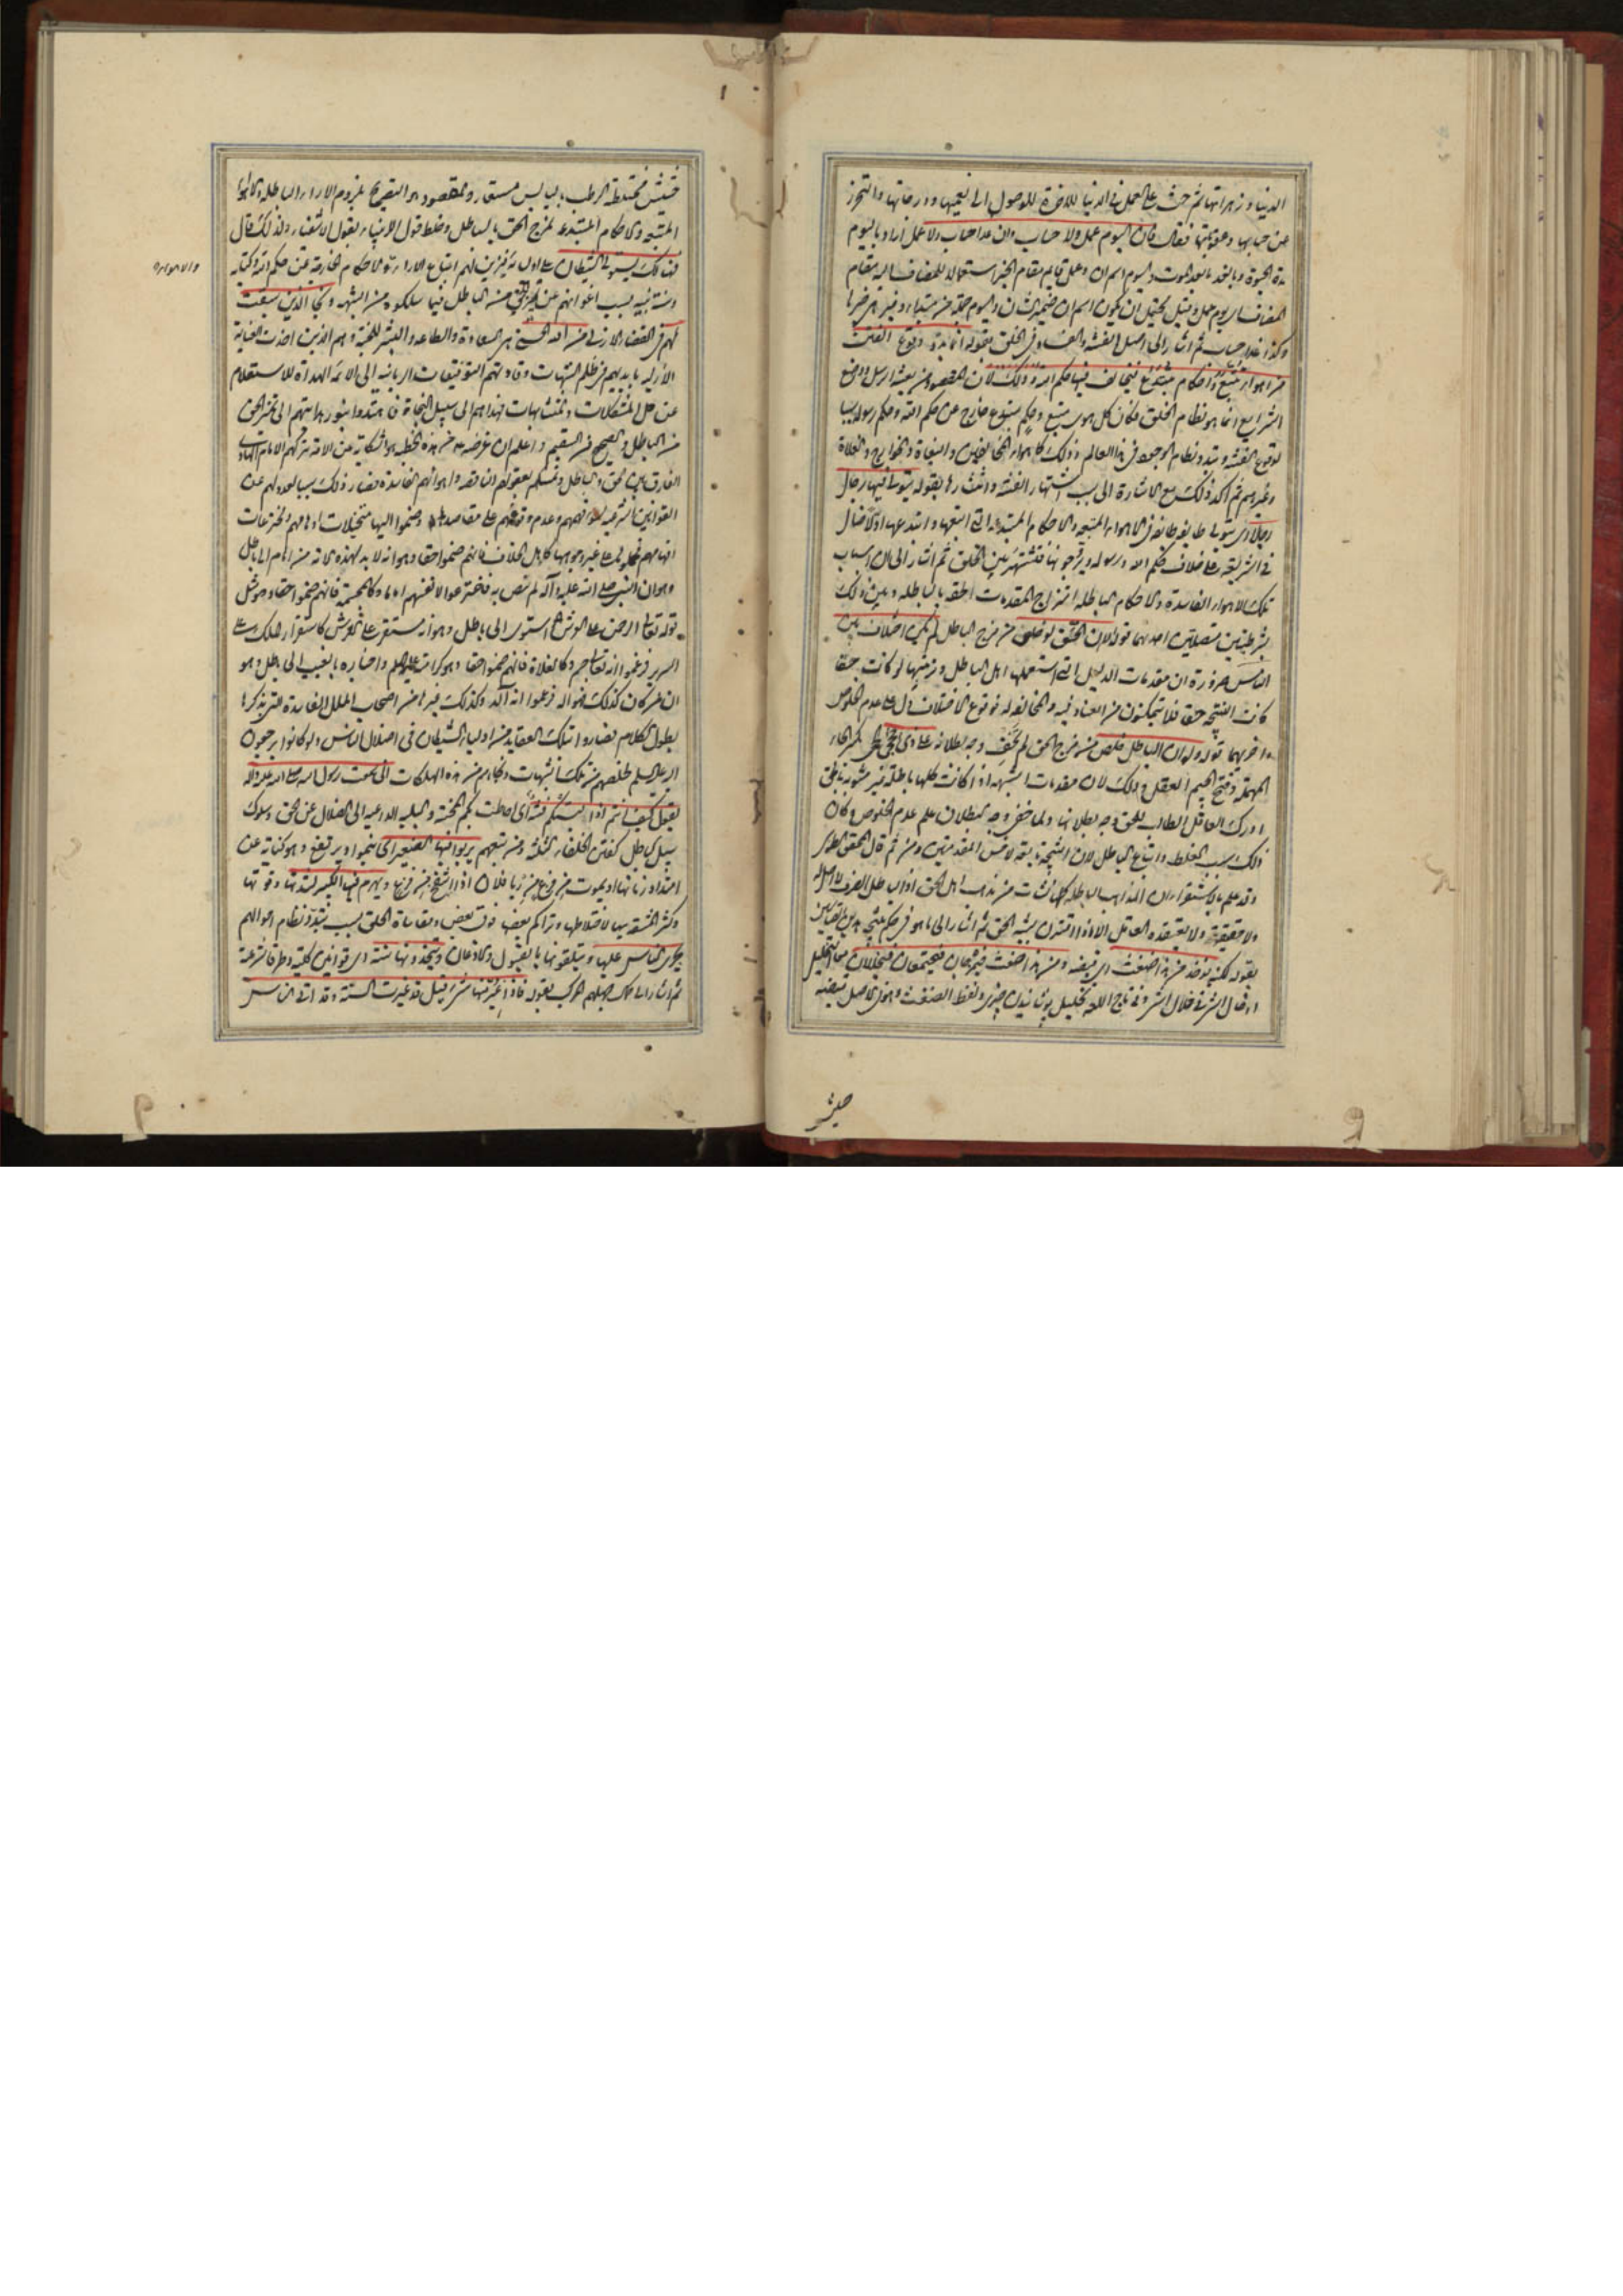 الدنيا و زهراتها ثم حث على العمل فى الدنيا للاخرة للوصول الى نعيمها و درجاتها والتحرز
عن حسابها وعقوبتها فقال فان اليوم عمل ولا حساب وان غدا حساب ولا عمل اراد باليوم
مدة الحيوة وبالغد ما بعد الموت واليوم اسم ان وعمل قايم مقام الخبر استعمالا للمضاف اليه مقام
المضاف اى يوم عمل وقيل يحتمل ان يكون اسم ان ضمير الشان واليوم عمل جملة من مبتداء وخبر هى خبرها
وكذا غدا حساب ثم اشار الى اصل الفتنة والفساد فى الخلق بقوله انما بدؤ وقوع الفتن
من اهواء تتبع واحكام تبتدع يخالف فيها حكم الله وذلك لان المقصود من بعثة الرسل ووضع
الشرايع انما هو نظام الخلق فكان كل هوى متبع وحكم مبتدع خارج عن حكم الله وحكم رسوله سببا
لوقوع الفتنة وتبدد نظام الوجود فى هذا العالم وذلك كاهواء المخالفين والبغاة والخوارج والغلاة
وغيرهم ثم اكد ذلك مع الاشارة الى سبب اشتهار الفتنة وانتشارها بقوله يتولى فيها رجال
رجالا اى يتولى طايفة طايفة فى الاهواء المتبعة والاحكام المبتدعة التى اتبعها وابتدعها اولا ضال
فى الشريعة على خلاف حكم الله ورسوله ويروجونها فتشتهر بين الخلق ثم اشار الى ان اسباب
تلك الاهواء الفاسدة والاحكام الباطلة امتزاج المقدمات الحقة بالباطلة وبين ذلك
بشرطيتين متصلتين احديهما قوله لو ان الحق خلص من مزج الباطل لم يكن اختلاف بين
الناس ضرورة ان مقدمات الدليل التى استعملها اهل الباطل وزينها لو كانت حقا
كانت النتيجة حقا فلا يتمكنون من العناد فيه والمخالفة له فوقوع الاختلاف دل على عدم الخلوص
واخريهما قوله ولو ان الباطل خلص من مزج الحق لم يخف وجه بطلانه على ذى حجى بكسر الحاء
المهملة وفتح الجيم العقل وذلك لان مقدمات الشبهة اذا كانت كلها باطلة غير مشوبة بالحق
ادرك العاقل الطالب للحق وجه بطلانها ولما خفى وجه البطلان علم عدم الخلوص وكان
ذلك سبب الغلط واتباع الباطل لان النتيجة تابعة لاخس المقدمتين ومن ثم قال المحقق الطوسى
وقد علم بالاستقراء ان المذاهب الباطلة كلها نشات من مذاهب اهل الحق اذ الباطل الصرف لا اصل له
ولا حقيقة ولا يعتقده العاقل الا اذا اقترن بشبه الحق ثم اشار الى ما هو فى حكم نتيجة هاتين القضيتين
بقوله لكن يوخذ من هذا ضغث اى قبضة ومن هذا ضغث فيمزجان فيجتمعان فيجللان معا التجليل
وقال الشر فى خلال الشر وفى تاج اللغة تجليل پوشانيدن چيزى ولفظ الضغث وهو فى الاصل قبضة
حشيش
حشيش مختلطة الرطب باليابس مستعار والمقصود هو التصريح بلزوم الاراء الباطلة والاهواء
المتبعة والاحكام المبتدعة لمزج الحق بالباطل وخلط قول الانبياء بقول الاشقياء ولذلك قال
فهنالك يستولى الشيطان على اوليائه فيزين لهم اتباع الاراء والاحكام الخارجة عن حكم الله وكتابه
وسنة نبيه بسبب اغوائهم عن تمييز الحق من الباطل فيما سلكوه من الشبهة ونجا الذين سبقت
لهم فى القضاء الازلى من الله الحسنى هى السعادة والطاعة والبشرى للجنة وهم الذين اخذت العناية
الازلية بايديهم من ظلم الشبهات وقادتهم التوفيقات الربانية الى الائمة الهداة للاستعلام
عن حل المشكلات والمتشابهات فهداهم الى سبيل النجاة حتى اهتدوا بنور هدايتهم الى تمييز الحق
من الباطل والصحيح من السقيم واعلم ان غرضه من هذه الخطبة هو الشكاية عن الامة بتركهم الامام الهادى
الفارق بين الحق والباطل وتمسكهم بعقولهم الناقصة واهوائهم الفاسدة فصار ذلك سببا لعدولهم عن
القوانين الشرعية لسوء فهمهم وعدم وقوفهم على مقاصدها وضموا اليها متخيلات اوهامهم ومخترعات
افهامهم فحملوها على غير وجوهها كاهل الخلاف فانهم ضموا حقا وهو انه لا بد لهذه الامة من امام الى باطل
وهو ان النبى صلى الله عليه وآله لم ينص به فاخترعوا لانفسهم اماما وكالمجسمة فانهم ضموا حقا وهو مثل
قوله تعالى الرحمن على العرش استوى الى باطل وهو انه مستقر على العرش كاستقرار الملك على
السرير فزعموا انه تعالى جسم وكالغلاة فانهم ضموا حقا وهو كراماته عليه السلم واخباره بالغيب الى باطل وهو
ان من كان كذلك فهو اله فزعموا انه آله وكذلك غيرهم من اصحاب الملل الفاسدة التى بذكرها
يطول الكلام فصاروا بتلك العقايد من اولياء الشيطان فى اضلال الناس ولو كانوا يرجعون
اليه عليه السلم لخلصهم من تلك الشبهات ونجاهم من هذه المهلكات انى سمعت رسول الله صلى الله عليه وآله
يقول كيف انتم اذا لبستكم فتنة اى احاطت بكم المحنة والبلية الداعية الى الضلال عن الحق وسلوك
سبيل الباطل كفتن الخلفاء الثلثة ومن تبعهم يربو فيها الصغير اى ينموا ويرتفع وهو كناية عن
امتداد زمانها ويهرم فيها الكبير لشدتها وقوتها
وكثرة المشقة بها
يجرى الناس عليها ويتلقونها بالقبول والاذعان ويتخذونها سنة اى قوانين كلية وطرقا شرعية
ثم اشار الى جهلهم المركب بقوله فاذا غير منها شئ قيل قد غيرت السنة وقد اتى الناس